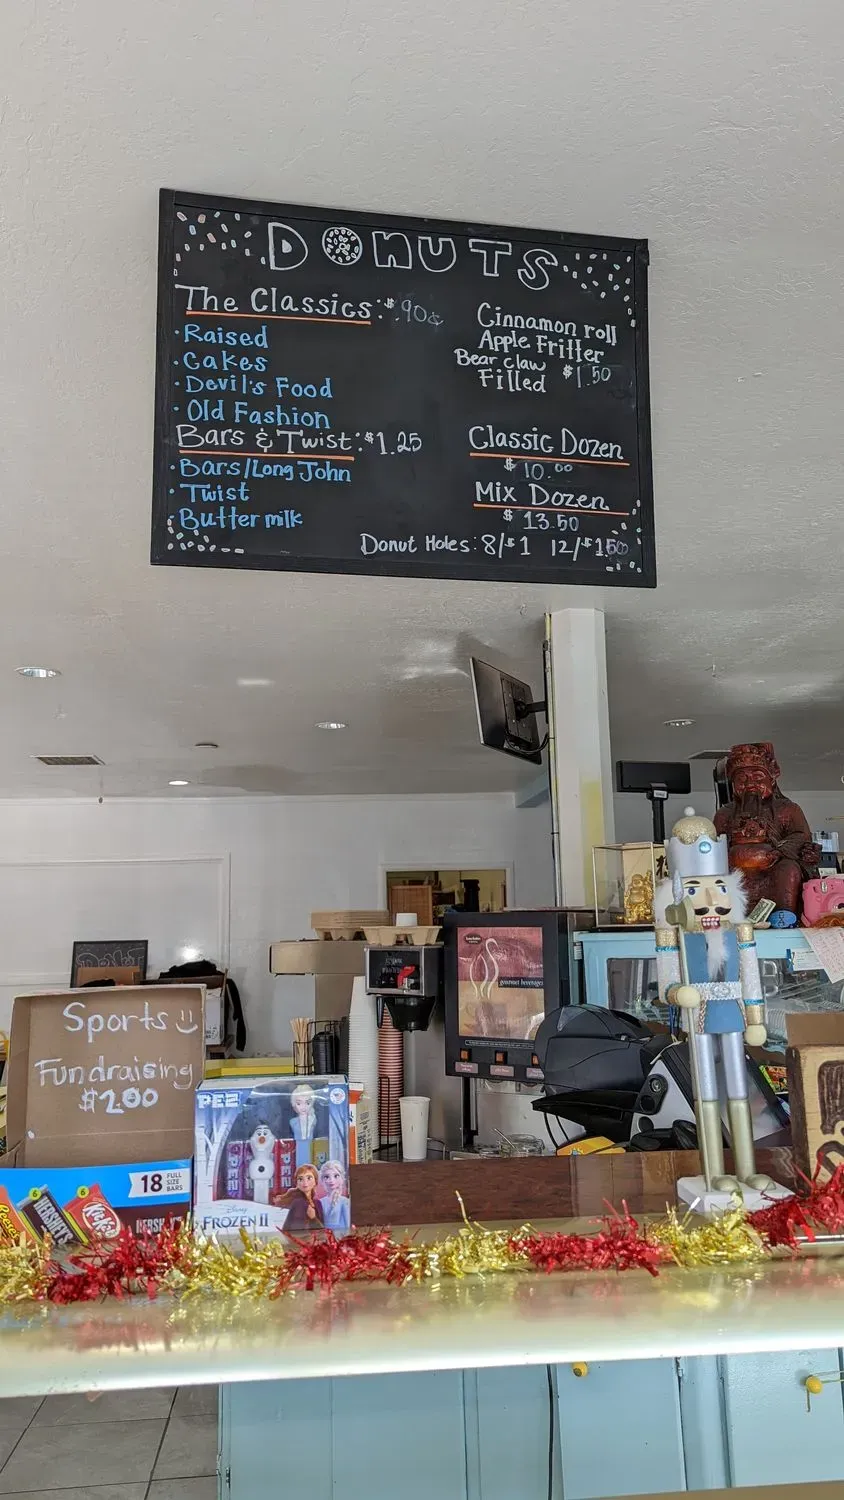 DONUTS
The Classics: $.90¢
· Raised
· Cakes
· Devil's Food
· Old Fashion
Bars & Twist: $1.25
· Bars/Long John
· Twist
· Butter milk
Cinnamon roll
Apple Fritter
Bear claw
Filled $1.50
Classic Dozen
$10.00
Mix Dozen
$13.50
Donut Holes: 8/$1 12/$1.50
gourmet beverages
Sports
Fundraising
$2.00
18 FULL
SIZE
BARS
6
6
Reese's
HERSHEY'S
KitKat
HERSHEY'S
PEZ
PEZ
PEZ
Disney
FROZEN II